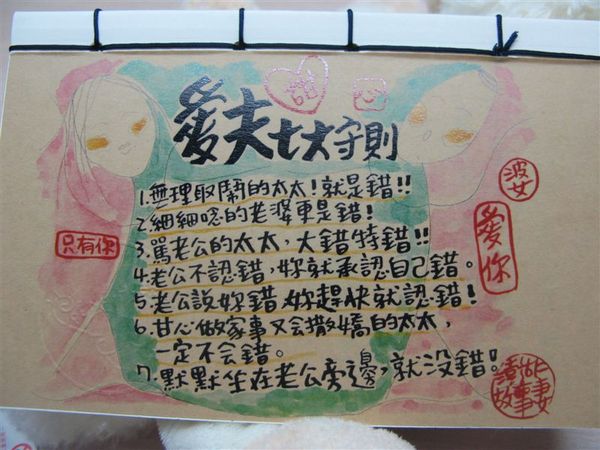 愛夫七大守則
1.無理取鬧的太太!就是錯!!
2.細細唸的老婆更是錯!
3.罵老公的太太,大錯特錯!!
4.老公不認錯,妳就承認自己錯。
5.老公說妳錯 妳趕快就認錯!
6.甘心做家事又会撒嬌的太太,
一定不会錯。
7.默默坐在老公旁邊,就沒錯!
只有你
波女
愛你